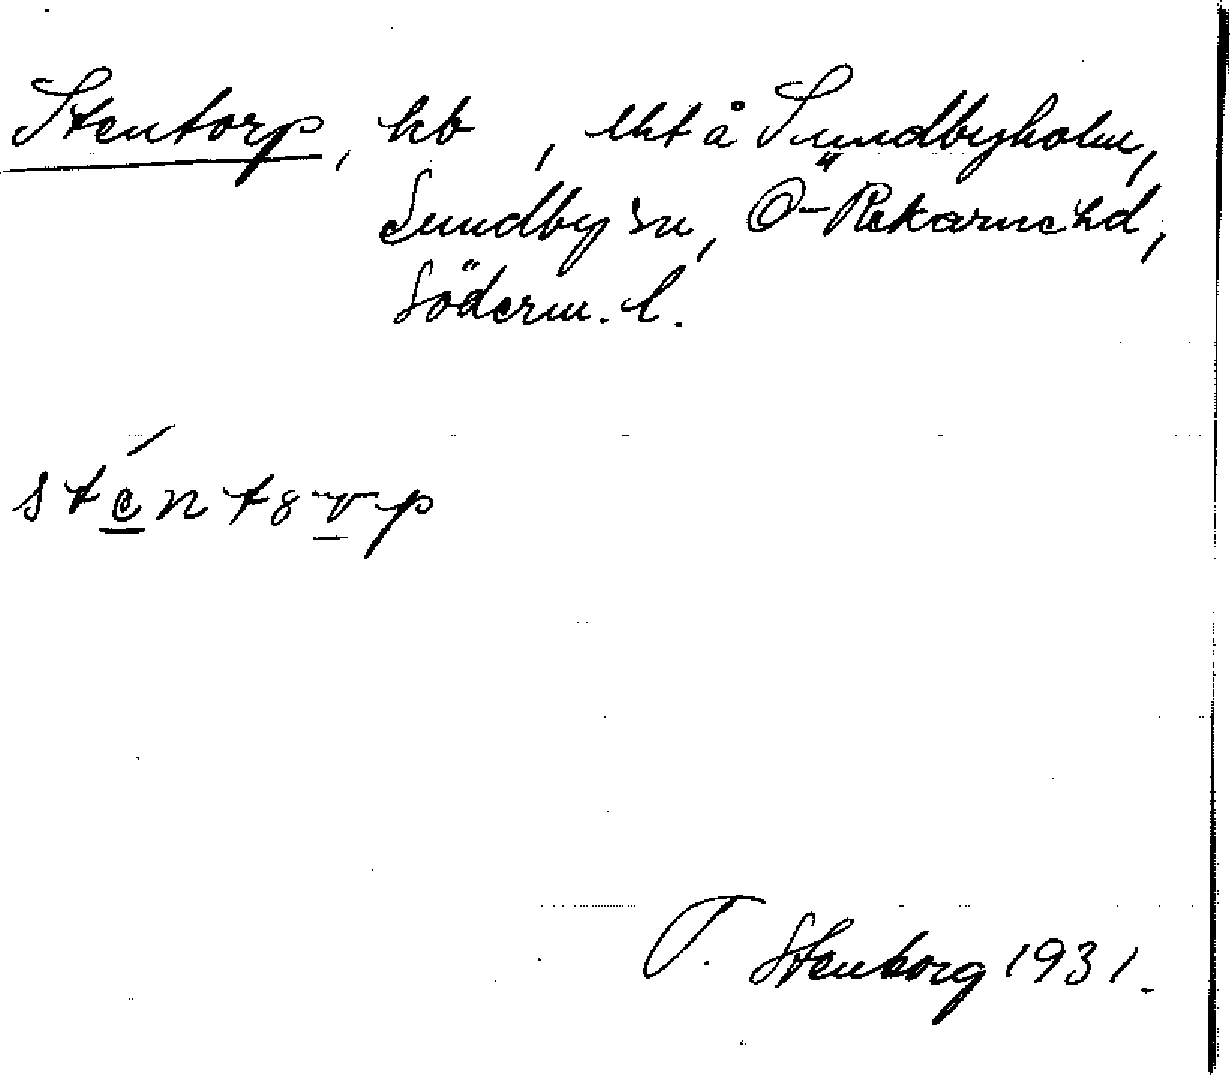 Stentorp, hb, uht å Sundbyholm,
Sundby sn, Ö-Rekarne hd,
Söderm. l.
sténtorp
T. Stenborg 1931.